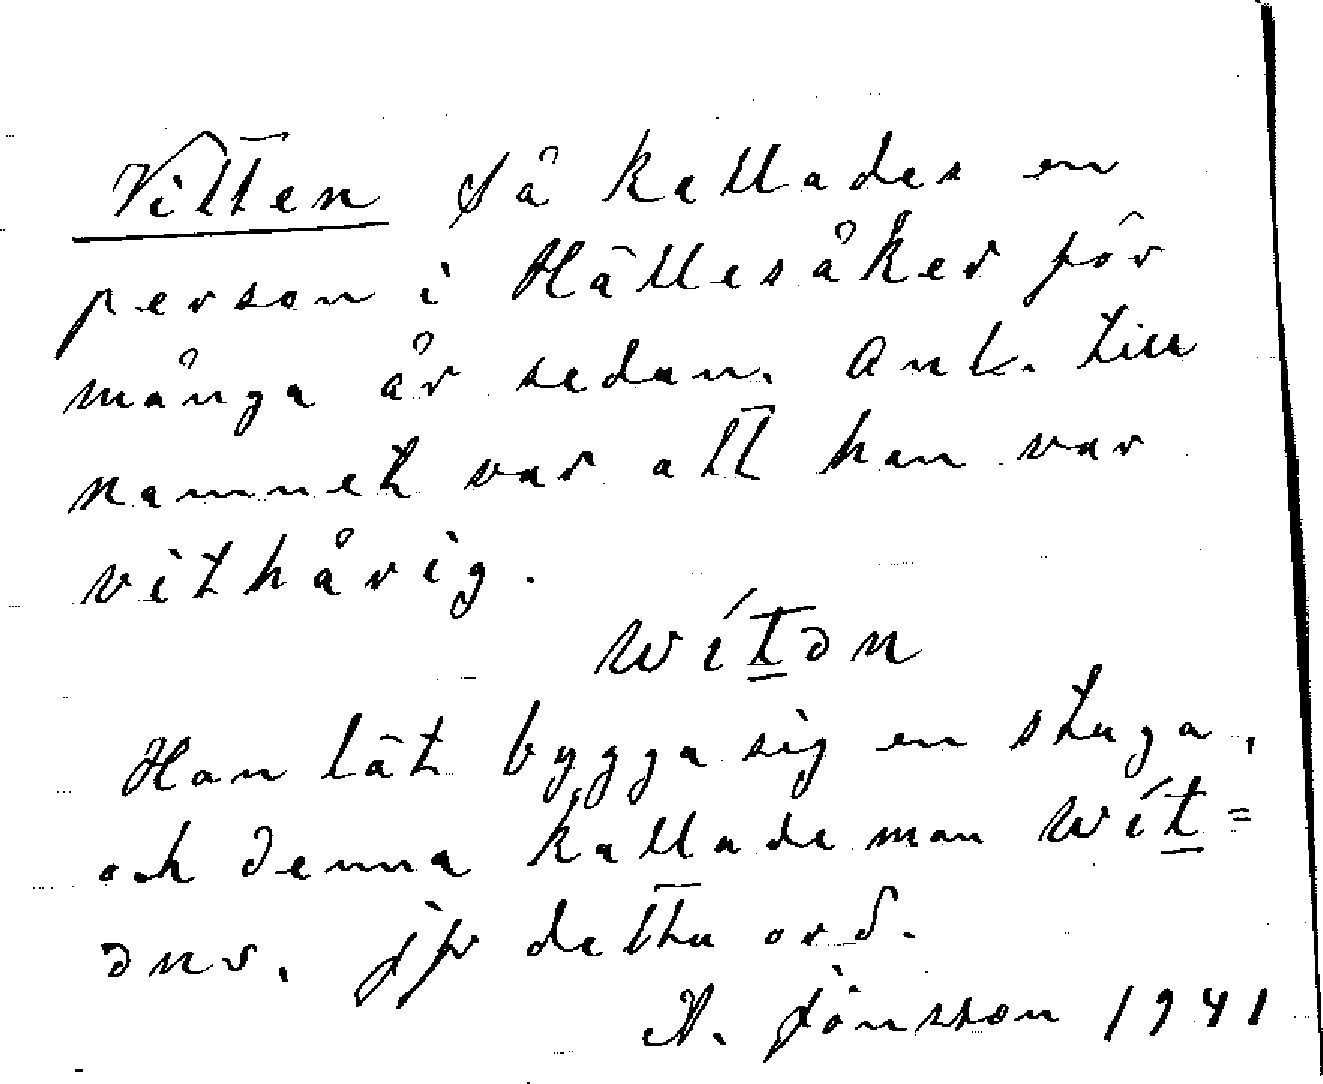 Vitten så kallades en
person i Hällesåker för
många år sedan. Anl. till
namnet var att han var
vithårig.
wít̲ǝn
Han lät bygga sig en stuga,
och denna kallade man wít̲=
ǝns. jfr detta ord.
A. Jönsson 1941